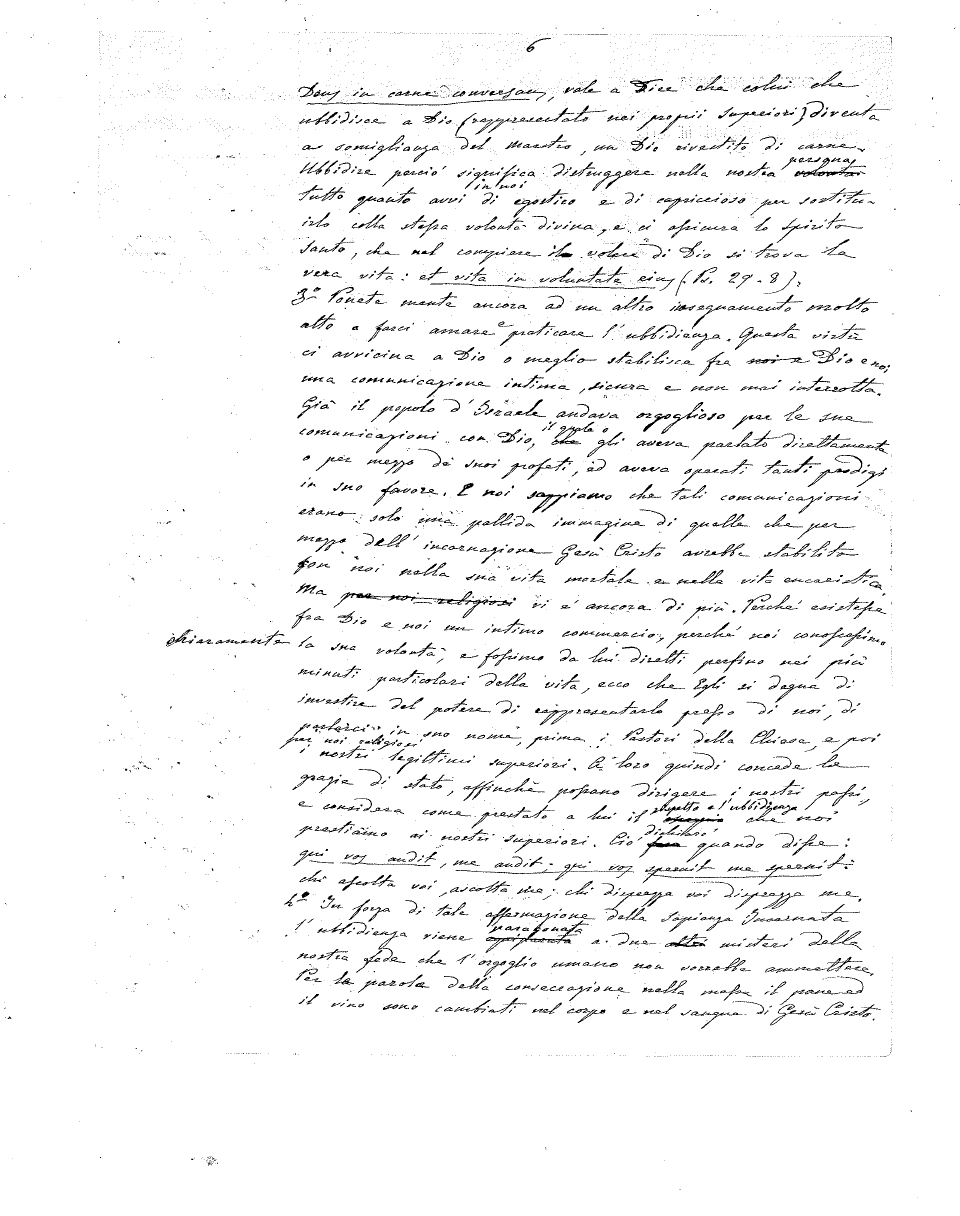 6
Deus in carne conversans, vale a dire che colui che
ubbidisce a Dio (rappresentato nei proprii superiori) diventa
a somiglianza del maestro, un Dio rivestito di carne.
Ubbidire perciò significa distruggere nella nostra volontà persona
tutto quanto avvi in noi di egoistico e di capriccioso per sostitu-
irlo colla stessa volontà divina, e ci assicura lo Spirito
Santo, che nel compiere il volere di Dio si trova la
vera vita: et vita in voluntate eius (Ps. 29-8).
3º Ponete mente ancora ad un altro insegnamento molto
atto a farci amare e praticare l'ubbidienza. Questa virtù
ci avvicina a Dio o meglio stabilisce fra noi e Dio e noi
una comunicazione intima, sicura e non mai interrotta.
Già il popolo d'Israele andava orgoglioso per le sue
comunicazioni con Dio, che il quale o gli aveva parlato direttamente
o per mezzo de suoi profeti, ed aveva operati tanti prodigi
in suo favore. E noi sappiamo che tali comunicazioni
erano solo una pallida immagine di quelle che per
mezzo dell'incarnazione Gesù Cristo avrebbe stabilito
con noi nella sua vita mortale e nella vita eucaristica.
Ma per noi religiosi vi è ancora di più. Perché esistesse
fra Dio e noi un intimo commercio, perché noi conoscessimo
chiaramente la sua volontà, e fossimo da lui diretti perfino nei più
minuti particolari della vita, ecco che Egli si degna di
investire del potere di rappresentarlo presso di noi, di
parlarci in suo nome, prima i Pastori della Chiesa, e poi
per noi religiosi i nostri legittimi superiori. A loro quindi concede le
grazie di stato, affinchè possano dirigere i nostri passi,
e considera come prestato a lui il rispetto e l'ubbidienza che noi
prestiamo ai nostri superiori. Ciò dichiarò quando disse:
qui vos audit, me audit; qui vos spernit me spernit:
chi ascolta voi, ascolta me; chi disprezza voi disprezza me.
4º In forza di tale affermazione della Sapienza Incarnata
l'ubbidienza viene paragonata a due altri misteri della
nostra fede che l'orgoglio umano non vorrebbe ammettere.
Per la parola della consecrazione nella messa il pane ed
il vino sono cambiati nel corpo e nel sangue di Gesù Cristo.